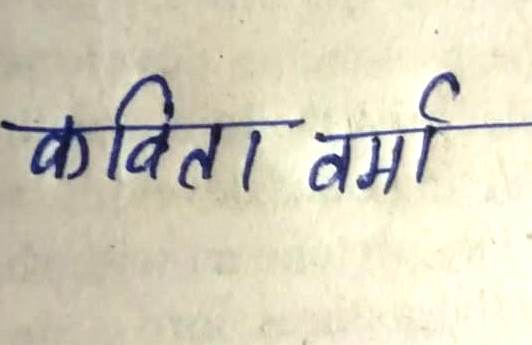 कविता वर्मा